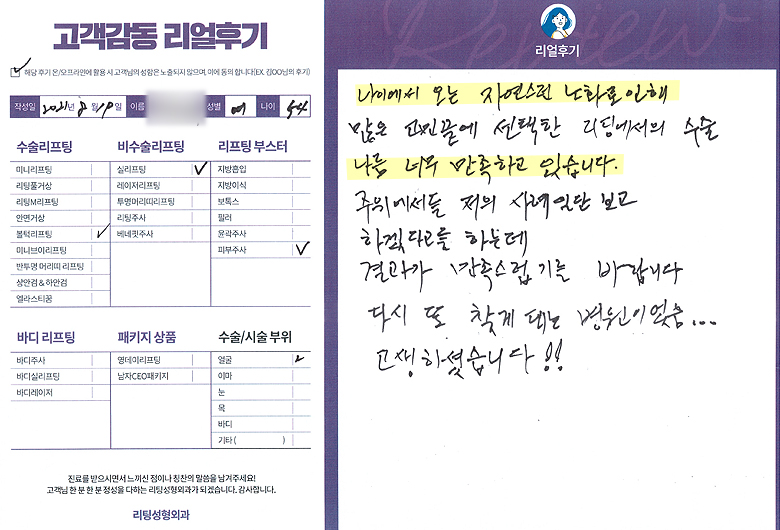 고객감동 리얼후기
해당 후기 온/오프라인에 활용 시 고객님의 성함은 노출되지 않으며, 이에 동의 합니다(EX. 김OO님의 후기)
작성일 2021년 8월 19일 이름 성별 여 나이 54
수술리프팅
미니리프팅
리팅풀거상
리팅M리프팅
안면거상
볼턱리프팅
미니브이리프팅
반투명 머리띠 리프팅
상안검 & 하안검
엘라스티꿈
비수술리프팅
실리프팅
레이저리프팅
투명머리띠리프팅
리팅주사
베네핏주사
리프팅 부스터
지방흡입
지방이식
보톡스
필러
윤곽주사
피부주사
바디 리프팅
바디주사
바디실리프팅
바디레이저
패키지 상품
명데이리프팅
남자CEO패키지
수술/시술 부위
얼굴
이마
눈
목
바디
기타 ( )
진료를 받으시면서 느끼신 점이나 칭찬의 말씀을 남겨주세요!
고객님 한 분 한 분 정성을 다하는 리팅성형외과가 되겠습니다. 감사합니다.
리팅성형외과
Review
리얼후기
나이에서 오는 자연스런 노화로 인해
많은 고민끝에 선택한 리팅에서의 수술
나름 너무 만족하고 있습니다.
주위에서들 저의 사례 일단 보고
하겠다고를 하는데
결과가 만족스럽기를 바랍니다
다시 또 찾게 되는 병원이었음...
고생하셨습니다!!